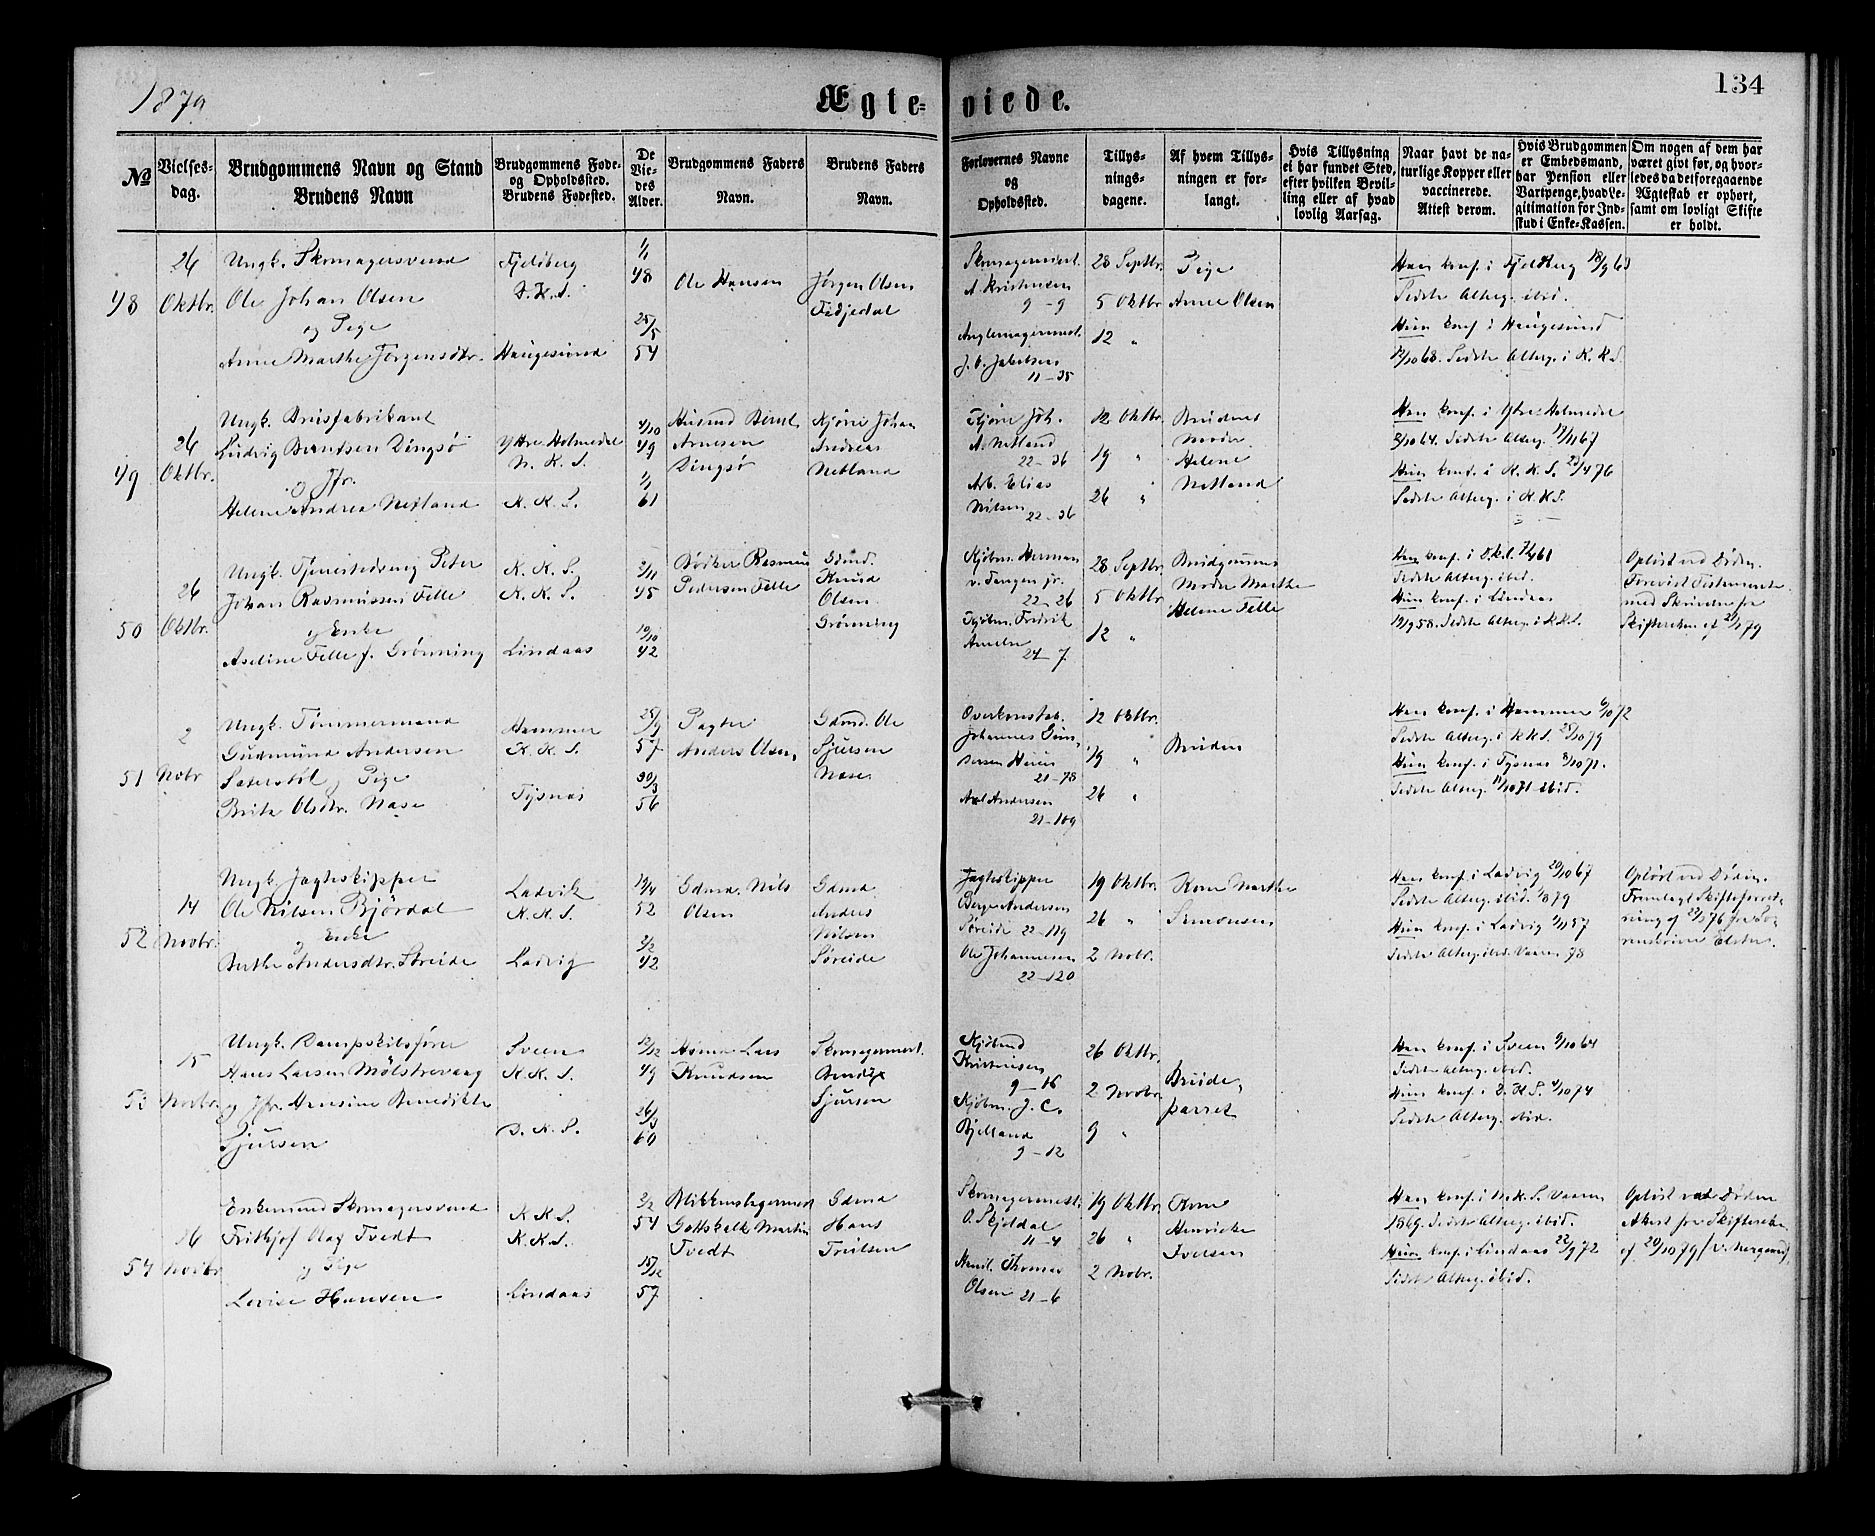 1879
Ægte-
viede.
134
№
Vielses-
dag.
Brudgommens Navn og Stand
Brudens Navn
Brudgommens Føde-
og Opholdssted.
Brudens Fødested.
De
Vie-
des
Alder.
Brudgommens Faders
Navn.
Brudens Faders
Navn.
Forlovernes Navne
og
Opholdssted.
Tillys-
nings-
dagene.
Af hvem Tillys-
ningen er for-
langt.
Hvis Tillysning
ei har fundet Sted,
efter hvilken Bevil-
ling eller af hvad
lovlig Aarsag.
Naar havt de na-
turlige Kopper eller
vaccinerede.
Attest derom.
Hvis Brudgommen
er Embedsmand,
har Pension eller
Vartpenge, hvad Le-
gitimation for Ind-
stud i Enke-Kassen.
Om nogen af dem har
været givt før, og hvor-
ledes da det foregaaende
Ægteskab er ophørt,
samt om lovligt Skifte
er holdt.
48
26
Oktbr.
Ungk. Skomagersvend
Ole Johan Olsen
og Pige
Anne Marthe Jørgensdtr.
Fjeldberg
D. K. S.
Haugesund
1/1
48
25/5
54
Ole Hansen
Jørgen Olsen
Fedjedal
Skomagermest.
A. Kristensen
9-9
J. O. Jakobsen
11-35
28 Septbr.
5 Oktbr.
12 "
Pige
Anne Olsen
Han konf. i Fjeldberg 18/9 63
Sidste Alterg. ibid.
Hun konf. i Haugesund
/10 68. Sidste Alterg. i K. K. S.
49
26
Oktbr.
Ungk. Brusfabrikant
Ludvig Berntsen Dingsø
og Jfr.
Helene Andrea Netland
Yttre Holmedal
N. K. S.
K. K. S.
4/10
49
1/1
61
Husmd Bernt
Arnesen
Dingsø
Kjøre Johan
Andreas
Netland
Kjøre Joh.
A. Netland
22-36
Arb. Elias
Nilsen
22-36
12 Oktbr.
19 "
26 "
Brudens
Moder
Helene
Netland
Han konf. i Ytre Holmedal
/10 64. Sidste Alterg. 17/11 67
Hun konf. i K. K. S. 23/4 76
Sidste Alterg. i K. K. S.
50
26
Oktbr.
Ungk. Tjenestedreng Peter
Johan Rasmussen Felle
og Enke
Aseline Felle f. Grønning
K. K. S.
K. K. S.
Lindaas
2/11
45
10/10
42
Bødker Rasmus
Pedersen Felle
Gdmd.
Knud
Olsen
Grønning
Kjøbm. Herman
v. Tangen jr.
22-26
Kjøbm. Fredrik
24-7
28 Septbr.
5 Oktbr.
12 "
Brudgommens
Moder Marthe
Helene Felle
Han konf. i D.K.S. /4 61
Sidste Alterg. ibid.
Hun konf. i Lindaas
19/9 58. Sidste Alterg. i K.K.S.
Opløst ved Døden.
Forevist Testamente
med Skrivelse fra
Skifteretten af 2/1 79
51
2
Novbr
Ungk. Tømmermand
Gudmund Andersen
Sæterstøl og Pige
Brita Olsdtr. Nase
Hammer
K. K. S.
Tysnæs
25/9
57
30/3
56
Pagter
Anders Olsen,
Gdmd. Ole
Sjursen
Nase
Overkonstab.
Johannes Gun-
21-78
Axl Andersen
21-109
12 Oktbr.
19 "
26 "
Bruden
Han konf. i Hammer 6/10 72
Sidste Alterg. i K.K.S. 25/10 79
Hun konf. i Tysnæs 8/10 71.
Sidste Alterg. /10 71 ibid.
52
14
Novbr.
Ungk. Jagteskipper
Ole Nilsen Bjørdal
og Enke
Berthe Andersdtr. Søreide
Ladvik
K. K. S.
Ladvig
19/4
52
2/2
42
Gdmd. Nils
Olsen
Gdmd
Anders
Nilsen
Søreide
Jagteskipper
Berge Andersen
Søreide 22-119
Ole Johannesen
22-120
19 Oktbr.
26 "
2 Novbr.
Kone Marthe
Simonsen
Han konf. i Ladvig 20/10 67
Sidste Alterg. ibid. /8 79
Hun konf. i Ladvig 1/11 57
Sidste Alterg. ibid. Vaaren 78
Opløst ved Døden.
Fremlagt Skifteforret-
ning af 22/1 76 fra So-
renskriver Elster.
53
15
Novbr.
Ungk. Dampskibsfører
Hans Larsen Mølstrevaag
og Jfr. Hansine Benedikte
Sjursen
Sveen
K. K. S.
D. K. S.
12/12
49
26/3
60
Lars
Knudsen
Skomagermest.
Bendix
Sjursen
Kjøbmd
Kristensen
9-16
Kjøbm. J. C.
Bjelland
9-12
26 Oktbr.
2 Novbr.
9 "
Brude-
parret
Han konf. i Sveen 9/10 64
Sidste Alterg. ibid.
Hun konf. i D. K. S. 4/10 74
Sidste Alterg. ibid.
54
16
Novbr
Enkemand Skomagersvend
Frithjof Olaf Tvedt
og Pige
Lovise Hansen
K. K. S.
K. K. S.
Lindaas
2/2
54
15/12
57
Blikkenslagermest
Gottskalk Martin
Tvedt
Gdmd
Hans
Truelsen
Skomagermest.
O. Skjoldal
11-4
Handl. Thomas
Olsen 21-6
19 Oktbr.
26 "
2 Novbr.
Kone
Henricke
Iversen
Han konf. i N. K. S. Vaaren
1869. Sidste Alterg. ibid.
Hun konf. i Lindaas 22/9 72
Sidste Alterg. ibid.
Opløst ved Døden
Attest fra Skifteretten
af 20/10 79